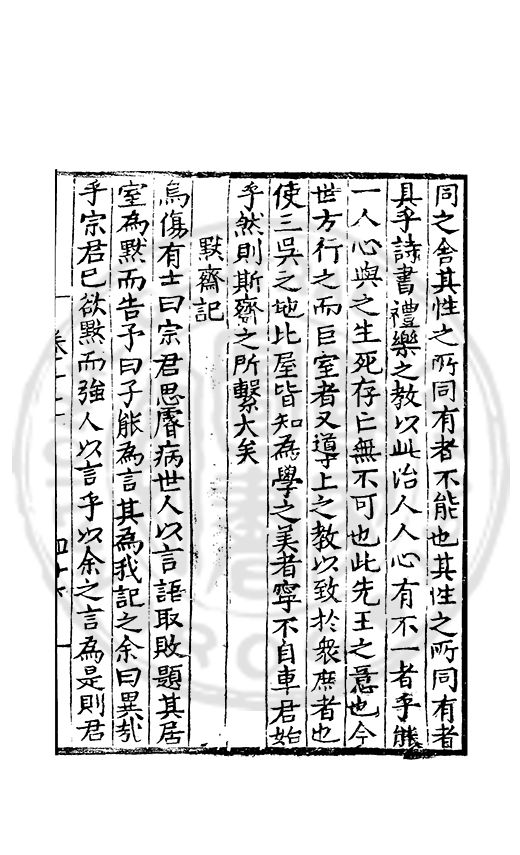 同之舍其性之所同有者不能也其性之所同有者
具乎詩書禮樂之教以此治人人心有不一者乎能
一人心與之生死存亡無不可也此先王之意也今
世方行之而巨室者又導上之教以致於衆庶者也
使三吳之地比屋皆知為學之美者寧不自車君始
乎然則斯齋之所繫大矣
默齋記
烏傷有士曰宗君思睿病世人以言語取敗題其居
室為默而告予曰子能為言其為我記之余曰異哉
乎宗君已欲默而強人以言乎以余之言為是則君
卷
四十六